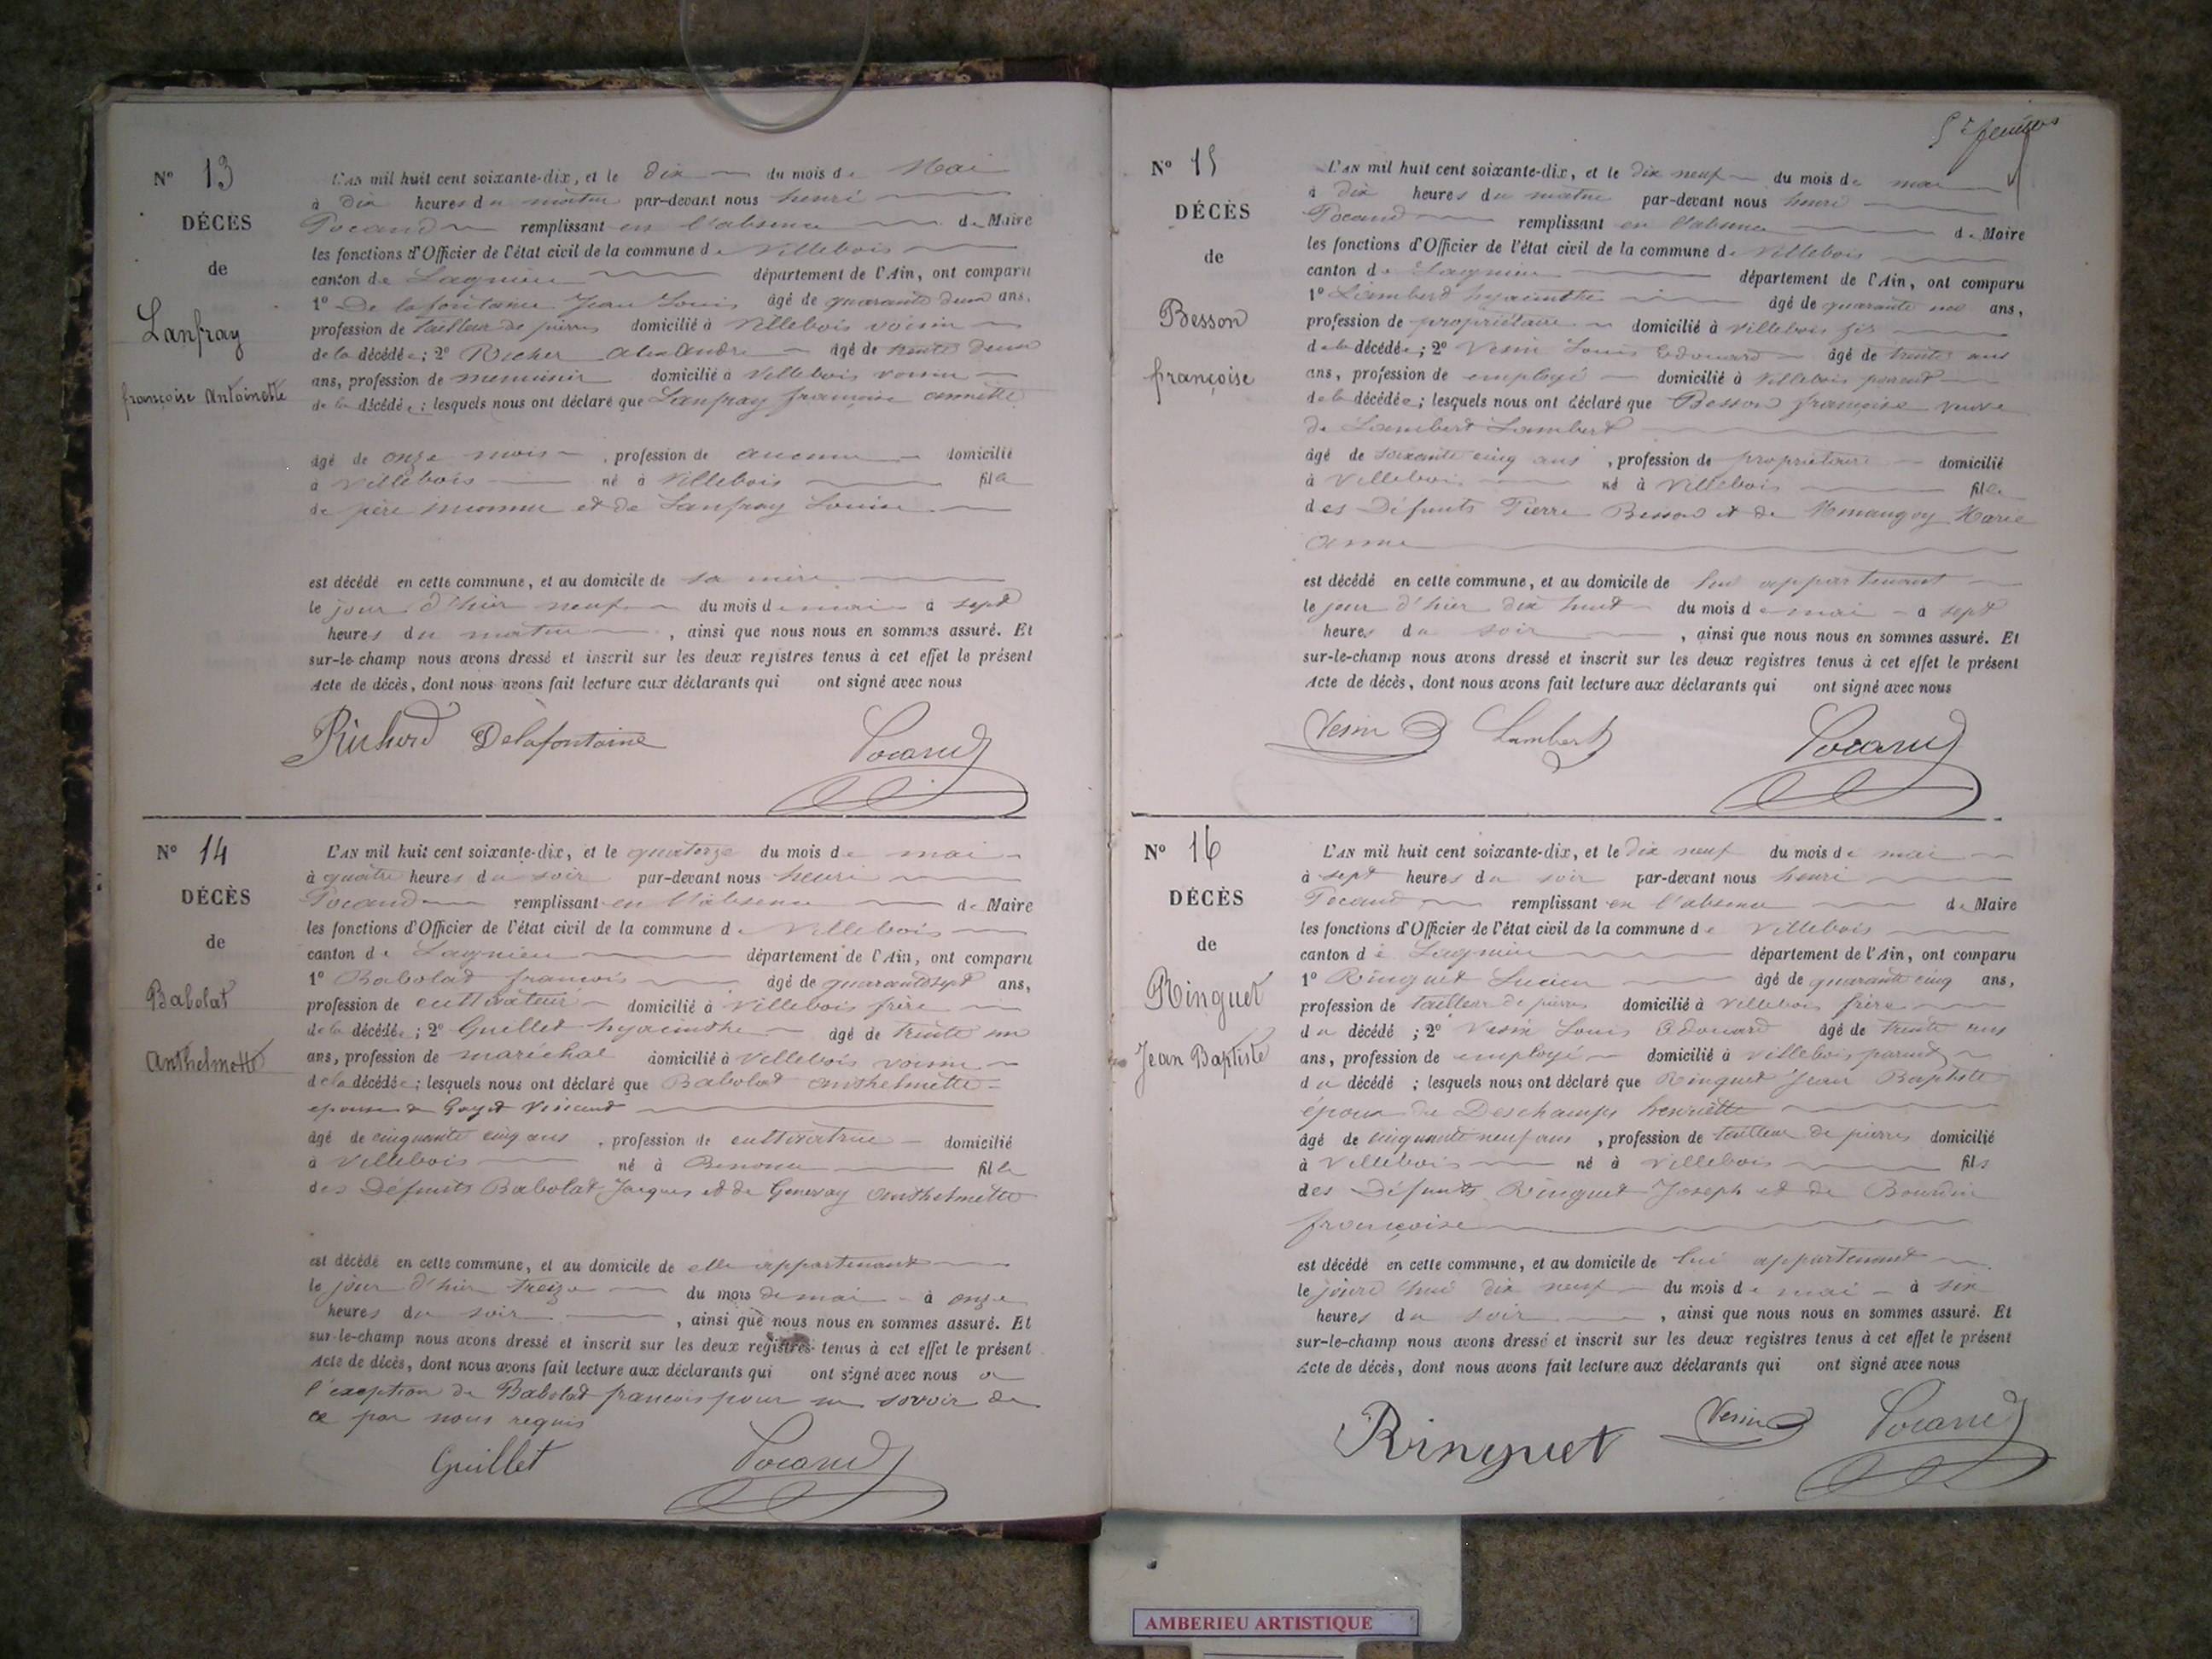 N° 13
DÉCÈS
de
Lanfray
françoise Antoinette
L'AN mil huit cent soixante-dix, et le dix du mois de Mai
à dix heures du matin par-devant nous henri
Pocand remplissant en l'absence de Maire
les fonctions d'Officier de l'état civil de la commune de Villebois
canton de Lagnieu département de l'Ain, ont comparu
1° De lafontaine Jean Louis âgé de quarante deux ans,
profession de tailleur de pierres domicilié à Villebois voisin
de la décédée; 2° Richer alexandre âgé de trente deux
ans, profession de menuisier domicilié à Villebois voisin
de la décédée; lesquels nous ont déclaré que Lanfray françoise
âgé de onze mois, profession de aucune domicilié
à Villebois né à Villebois fille
de père inconnu et de Lanfray Louise
est décédé en cette commune, et au domicile de sa mère
le jour d'hier neuf du mois de mai à sept
heures du matin, ainsi que nous nous en sommes assuré. Et
sur-le-champ nous avons dressé et inscrit sur les deux registres tenus à cet effet le présent
Acte de décès, dont nous avons fait lecture aux déclarants qui ont signé avec nous
Richard Delafontaine Pocand
N° 14
DÉCÈS
de
Babolat
Anthelmette
L'AN mil huit cent soixante-dix, et le quatorze du mois de mai
à quatre heures du soir par-devant nous henri
Pocand remplissant en l'absence de Maire
les fonctions d'Officier de l'état civil de la commune de Villebois
canton de Lagnieu département de l'Ain, ont comparu
1° Babolat francois âgé de quarante sept ans,
profession de cultivateur domicilié à Villebois frère
de la décédée; 2° Guillet hyacinthe âgé de trente un
ans, profession de maréchal domicilié à Villebois voisin
de la décédée; lesquels nous ont déclaré que Babolat anthelmette
epouse de Goyet Vincent
âgé de cinquante cinq ans, profession de cultivatrice domicilié
à Villebois né à Benonce fille
des Défunts Babolat Jacques et de Genevay anthelmette
est décédé en cette commune, et au domicile de elle appartenant
le jour d'hier treize du mois de mai à onze
heures du soir, ainsi que nous nous en sommes assuré. Et
sur-le-champ nous avons dressé et inscrit sur les deux registres tenus à cet effet le présent
Acte de décès, dont nous avons fait lecture aux déclarants qui ont signé avec nous a
l'exception de Babolat francois pour ne savoir de
ce par nous requis
Guillet Pocand
N° 15
DÉCÈS
de
Besson
françoise
L'AN mil huit cent soixante-dix, et le dix neuf du mois de mai
à dix heures du matin par-devant nous henri
Pocand remplissant en l'absence de Maire
les fonctions d'Officier de l'état civil de la commune de Villebois
canton de Lagnieu département de l'Ain, ont comparu
1° Lambert hyacinthe âgé de quarante un ans,
profession de propriétaire domicilié à Villebois fils
de la décédée; 2° Vesin Louis Edouard âgé de trente ans
ans, profession de employé domicilié à Villebois parent
de la décédée; lesquels nous ont déclaré que Besson françoise veuve
de Lambert Lambert
âgé de soixante cinq ans, profession de propriétaire domicilié
à Villebois né à Villebois fille
des Défunts Pierre Besson et de Marie
anne
est décédé en cette commune, et au domicile de lui appartenant
le jour d'hier dix huit du mois de mai à sept
heures du soir, ainsi que nous nous en sommes assuré. Et
sur-le-champ nous avons dressé et inscrit sur les deux registres tenus à cet effet le présent
Acte de décès, dont nous avons fait lecture aux déclarants qui ont signé avec nous
Vesin Lambert Pocand
N° 16
DÉCÈS
de
Ringuet
Jean Baptiste
L'AN mil huit cent soixante-dix, et le dix neuf du mois de mai
à sept heures du soir par-devant nous henri
Pocand remplissant en l'absence de Maire
les fonctions d'Officier de l'état civil de la commune de Villebois
canton de Lagnieu département de l'Ain, ont comparu
1° Ringuet Lucien âgé de quarante cinq ans,
profession de tailleur de pierres domicilié à Villebois frère
du décédé; 2° Vesin Louis Edouard âgé de trente ans
ans, profession de employé domicilié à Villebois parent
du décédé; lesquels nous ont déclaré que Ringuet Jean Baptiste
époux de Deschamps henriette
âgé de cinquante neuf ans, profession de tailleur de pierres domicilié
à Villebois né à Villebois fils
des Défunts Ringuet Joseph et de Bourdin
françoise
est décédé en cette commune, et au domicile de lui appartenant
le jourd'hui dix neuf du mois de mai à six
heures du soir, ainsi que nous nous en sommes assuré. Et
sur-le-champ nous avons dressé et inscrit sur les deux registres tenus à cet effet le présent
Acte de décès, dont nous avons fait lecture aux déclarants qui ont signé avec nous
Ringuet Vesin Pocand
AMBERIEU ARTISTIQUE